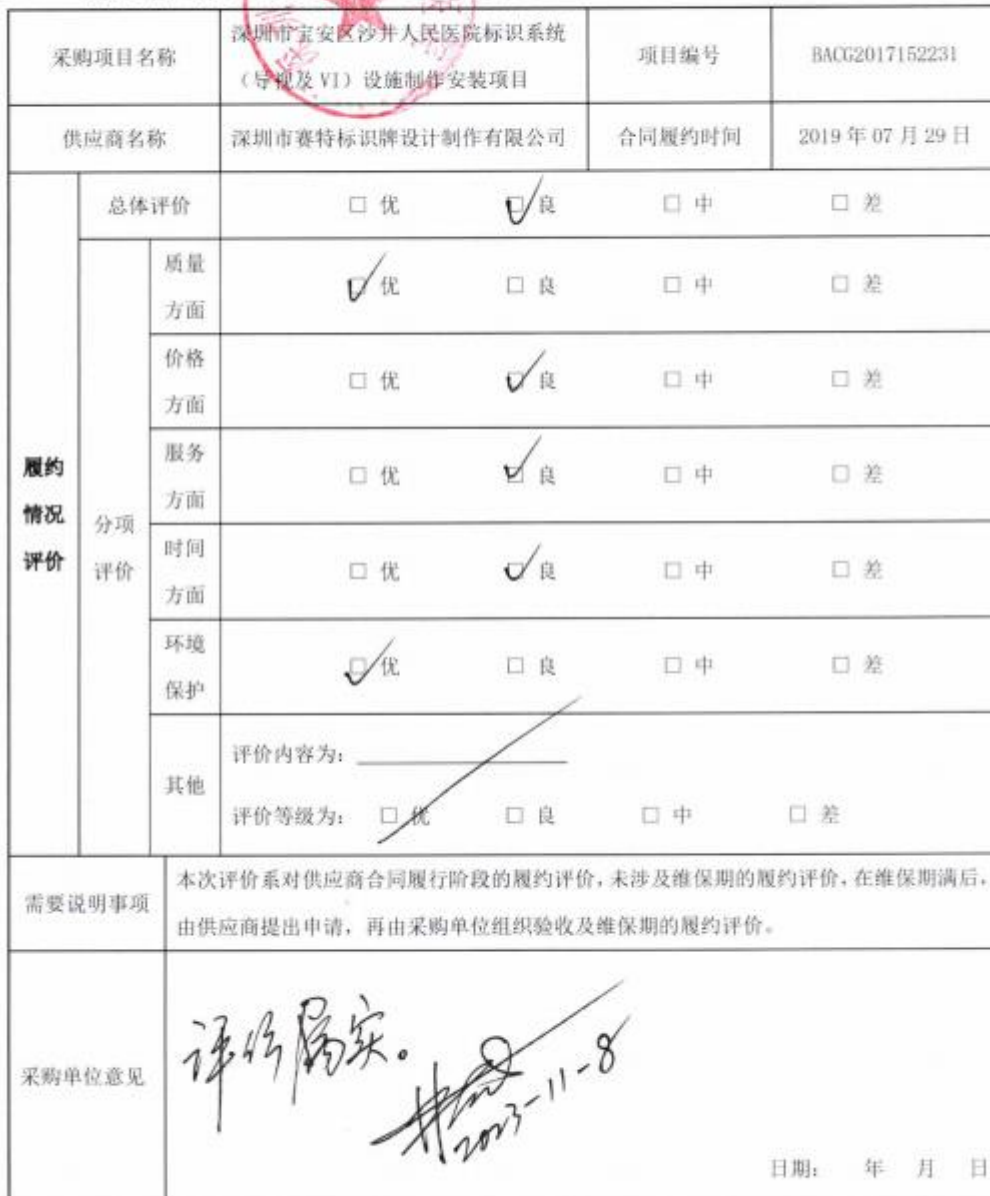 采购项目名称
深圳市宝安区沙井人民医院标识系统
（导视及 VI）设施制作安装项目
项目编号
BACG2017152231
供应商名称
深圳市赛特标识牌设计制作有限公司
合同履约时间
2019 年 07 月 29 日
履约
情况
评价
总体评价
□ 优 ☑ 良 □ 中 □ 差
分项
评价
质量
方面
☑ 优 □ 良 □ 中 □ 差
价格
方面
□ 优 ☑ 良 □ 中 □ 差
服务
方面
□ 优 ☑ 良 □ 中 □ 差
时间
方面
□ 优 ☑ 良 □ 中 □ 差
环境
保护
☑ 优 □ 良 □ 中 □ 差
其他
评价内容为：
评价等级为： □ 优 □ 良 □ 中 □ 差
需要说明事项
本次评价系对供应商合同履行阶段的履约评价，未涉及维保期的履约评价，在维保期满后，
由供应商提出申请，再由采购单位组织验收及维保期的履约评价。
采购单位意见
评价属实。
2023-11-8
日期： 年 月 日